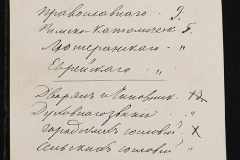 Православнаго 9.
Римско-Католическ 5.
Лютеранскаго "
Еврейскаго. "
Дворянъ и Чиновник.
Духовнаго званія "
городскихъ сословій X
сельскихъ сословій "